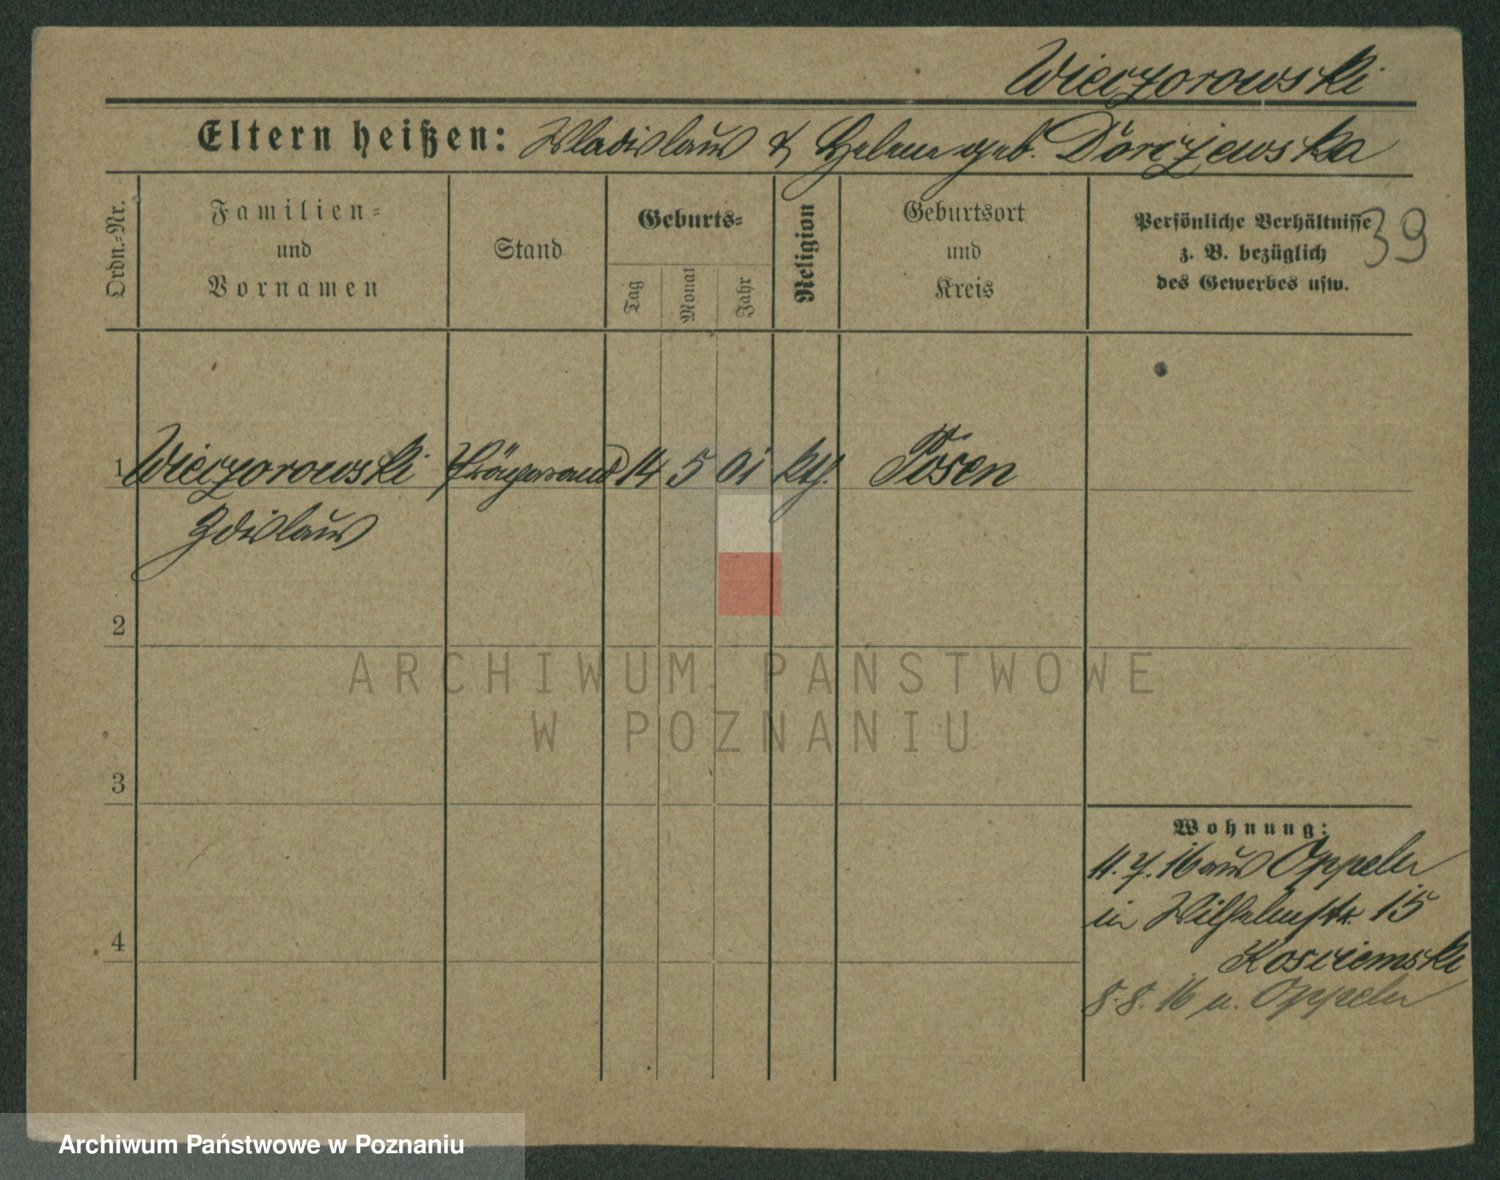 Wieczorowski
Eltern heißen: Wladislaus & Helene geb. Dörczewska
Ordn.-Nr.
Familien-
und
Vornamen
Stand
Geburts-
Tag
Monat
Jahr
Religion
Geburtsort
und
Kreis
Persönliche Verhältnisse
z. B. bezüglich
des Gewerbes usw.
39
1 Wieczorowski 14 5 01 kth. Posen
Zdislaus
2
ARCHIWUM PAŃSTWOWE
W POZNANIU
3
Wohnung:
11.7.16 aus Oppeln
in Wilhelmstr. 15
4
Kosciemski
8.8.16 n. Oppeln
Archiwum Państwowe w Poznaniu